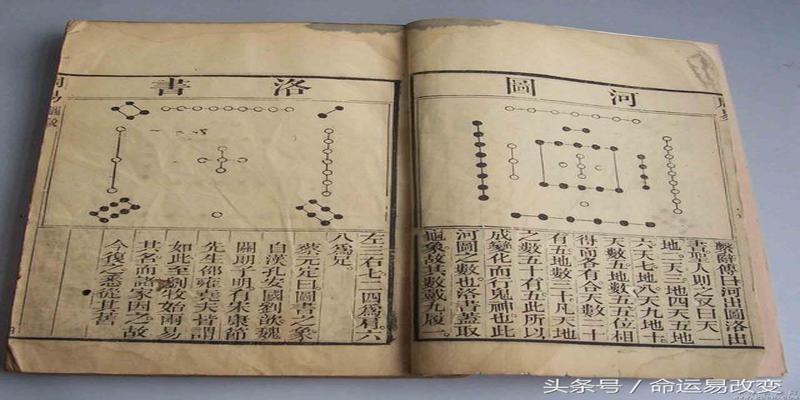 河圖
繫辭傳曰河出圖洛出
書聖人則之又曰天一
地二天三地四天五地
六天七地八天九地十
天數五地數五五位相
得而各有合天數二十
有五地數三十凡天地
之數五十有五此所以
成變化而行鬼神也此
河圖之數也洛書蓋取
龜象故其數戴九履一
洛書
左三右七二四爲肩六
八爲足
蔡元定曰圖書之象
自漢孔安國劉歆魏
關朗子明有宋康節
先生邵雍堯夫皆謂
如此至劉牧始兩易
其名而諸家因之故
今復之悉從其舊
周易
头条号 / 命运易改变